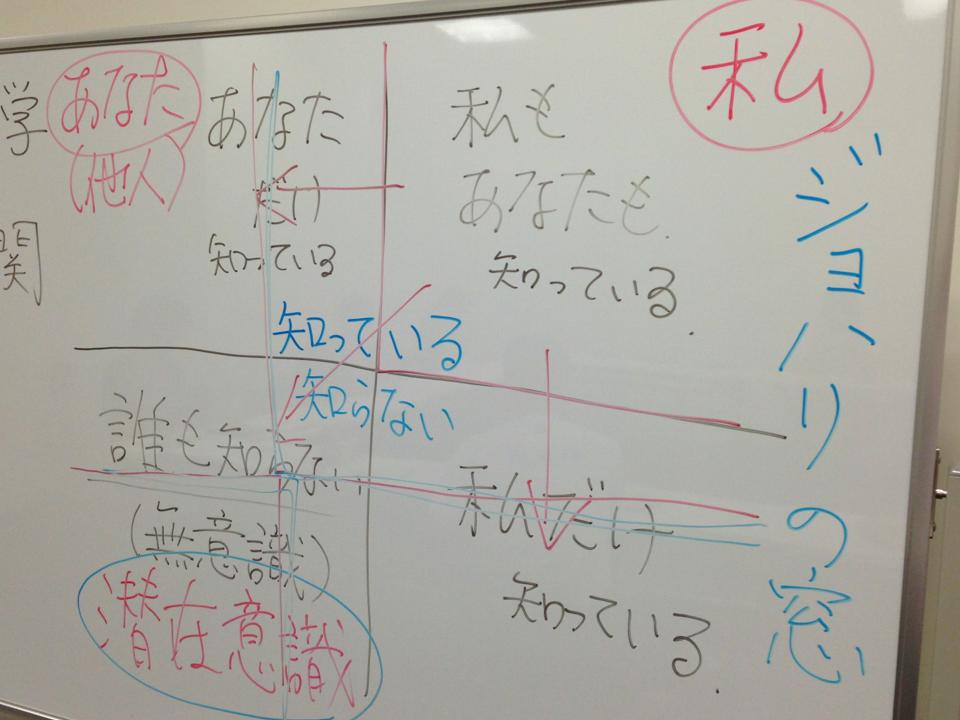 学
関
あなた
(他人)
あなた
だけ
知っている
私も
あなたも
知っている.
私
ジョハリの窓
知っている
知らない
誰も知らない
(無意識)
潜在意識
私だけ
知っている.